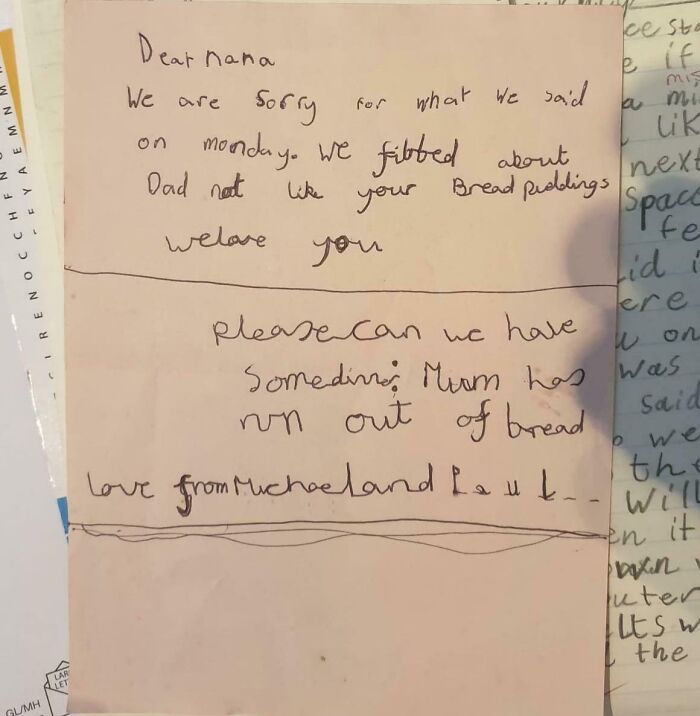 Dear nana
We are sorry for what we said
on monday. we fibbed about
Dad not like your Bread puddings
welove you
please can we have
some Mum has
run out of bread
Love from Michael and
ce sto
e if
mis
a mi
lik
next
Space
fe
id i
ere
u on
was
said
we
the
will
en it
own
uter
lts w
the
GL/MH
LAR
LET